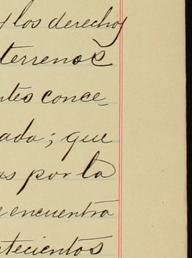 y los derechos
terrenos
ntes conce-
ada; que
as por la
e encuentra
tecientos